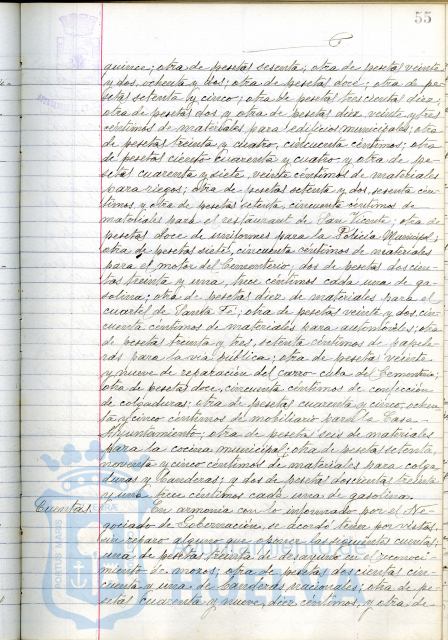 55
quince; otra de pesetas sesenta; otra de pesetas veinte
y dos, ochenta y dos; otra de pesetas doce; otra de pe-
setas setenta y cinco; otra de pesetas trescientas diez
otra de pesetas dos y otra de pesetas diez, veinte y tres
céntimos de materiales para edificios municipales; otra
de pesetas treinta y cuatro, cincuenta céntimos; otra
de pesetas ciento cuarenta y cuatro y otra de pe-
setas cuarenta y siete, veinte céntimos de materiales
para riegos; otra de pesetas setenta y dos, sesenta cén-
timos, y otra de pesetas setenta, cincuenta céntimos de
materiales para el restaurant de San Vicente; otra de
pesetas doce de uniformes para la Policía Municipal;
otra de pesetas siete, cincuenta céntimos de materiales
para el motor del Cementerio; dos de pesetas doscien-
tas treinta y una, trece céntimos cada una de ga-
solina; otra de pesetas diez de materiales para el
cuartel de Santa Fé; otra de pesetas veinte y dos, cin-
cuenta céntimos de materiales para automóviles; otra
de pesetas treinta y tres, setenta céntimos de papele-
ras para la vía pública; otra de pesetas veinte
y nueve de reparación del carro-cuba del Cementerio;
otra de pesetas doce, cincuenta céntimos de confección
de colgaduras; otra de pesetas cuarenta y cinco, ochen-
ta y cinco céntimos de mobiliario para la Casa-
Ayuntamiento; otra de pesetas seis de materiales
para la cocina municipal; otra de pesetas setenta,
noventa y cinco céntimos de materiales para colga-
duras y banderas; y dos de pesetas doscientas treinta
y una trece céntimos cada una de gasolina.
Cuentas. En armonía con lo informado por el Ne-
gociado de Gobernación, se acordó tener por vistas,
sin reparo alguno que oponer las siguientes cuentas:
una de pesetas treinta de desayuno en el reconoci-
miento de mozos; otra de pesetas doscientas cin-
cuenta y una de banderas nacionales; otra de pe-
setas cuarenta y nueve, diez céntimos, y otra de